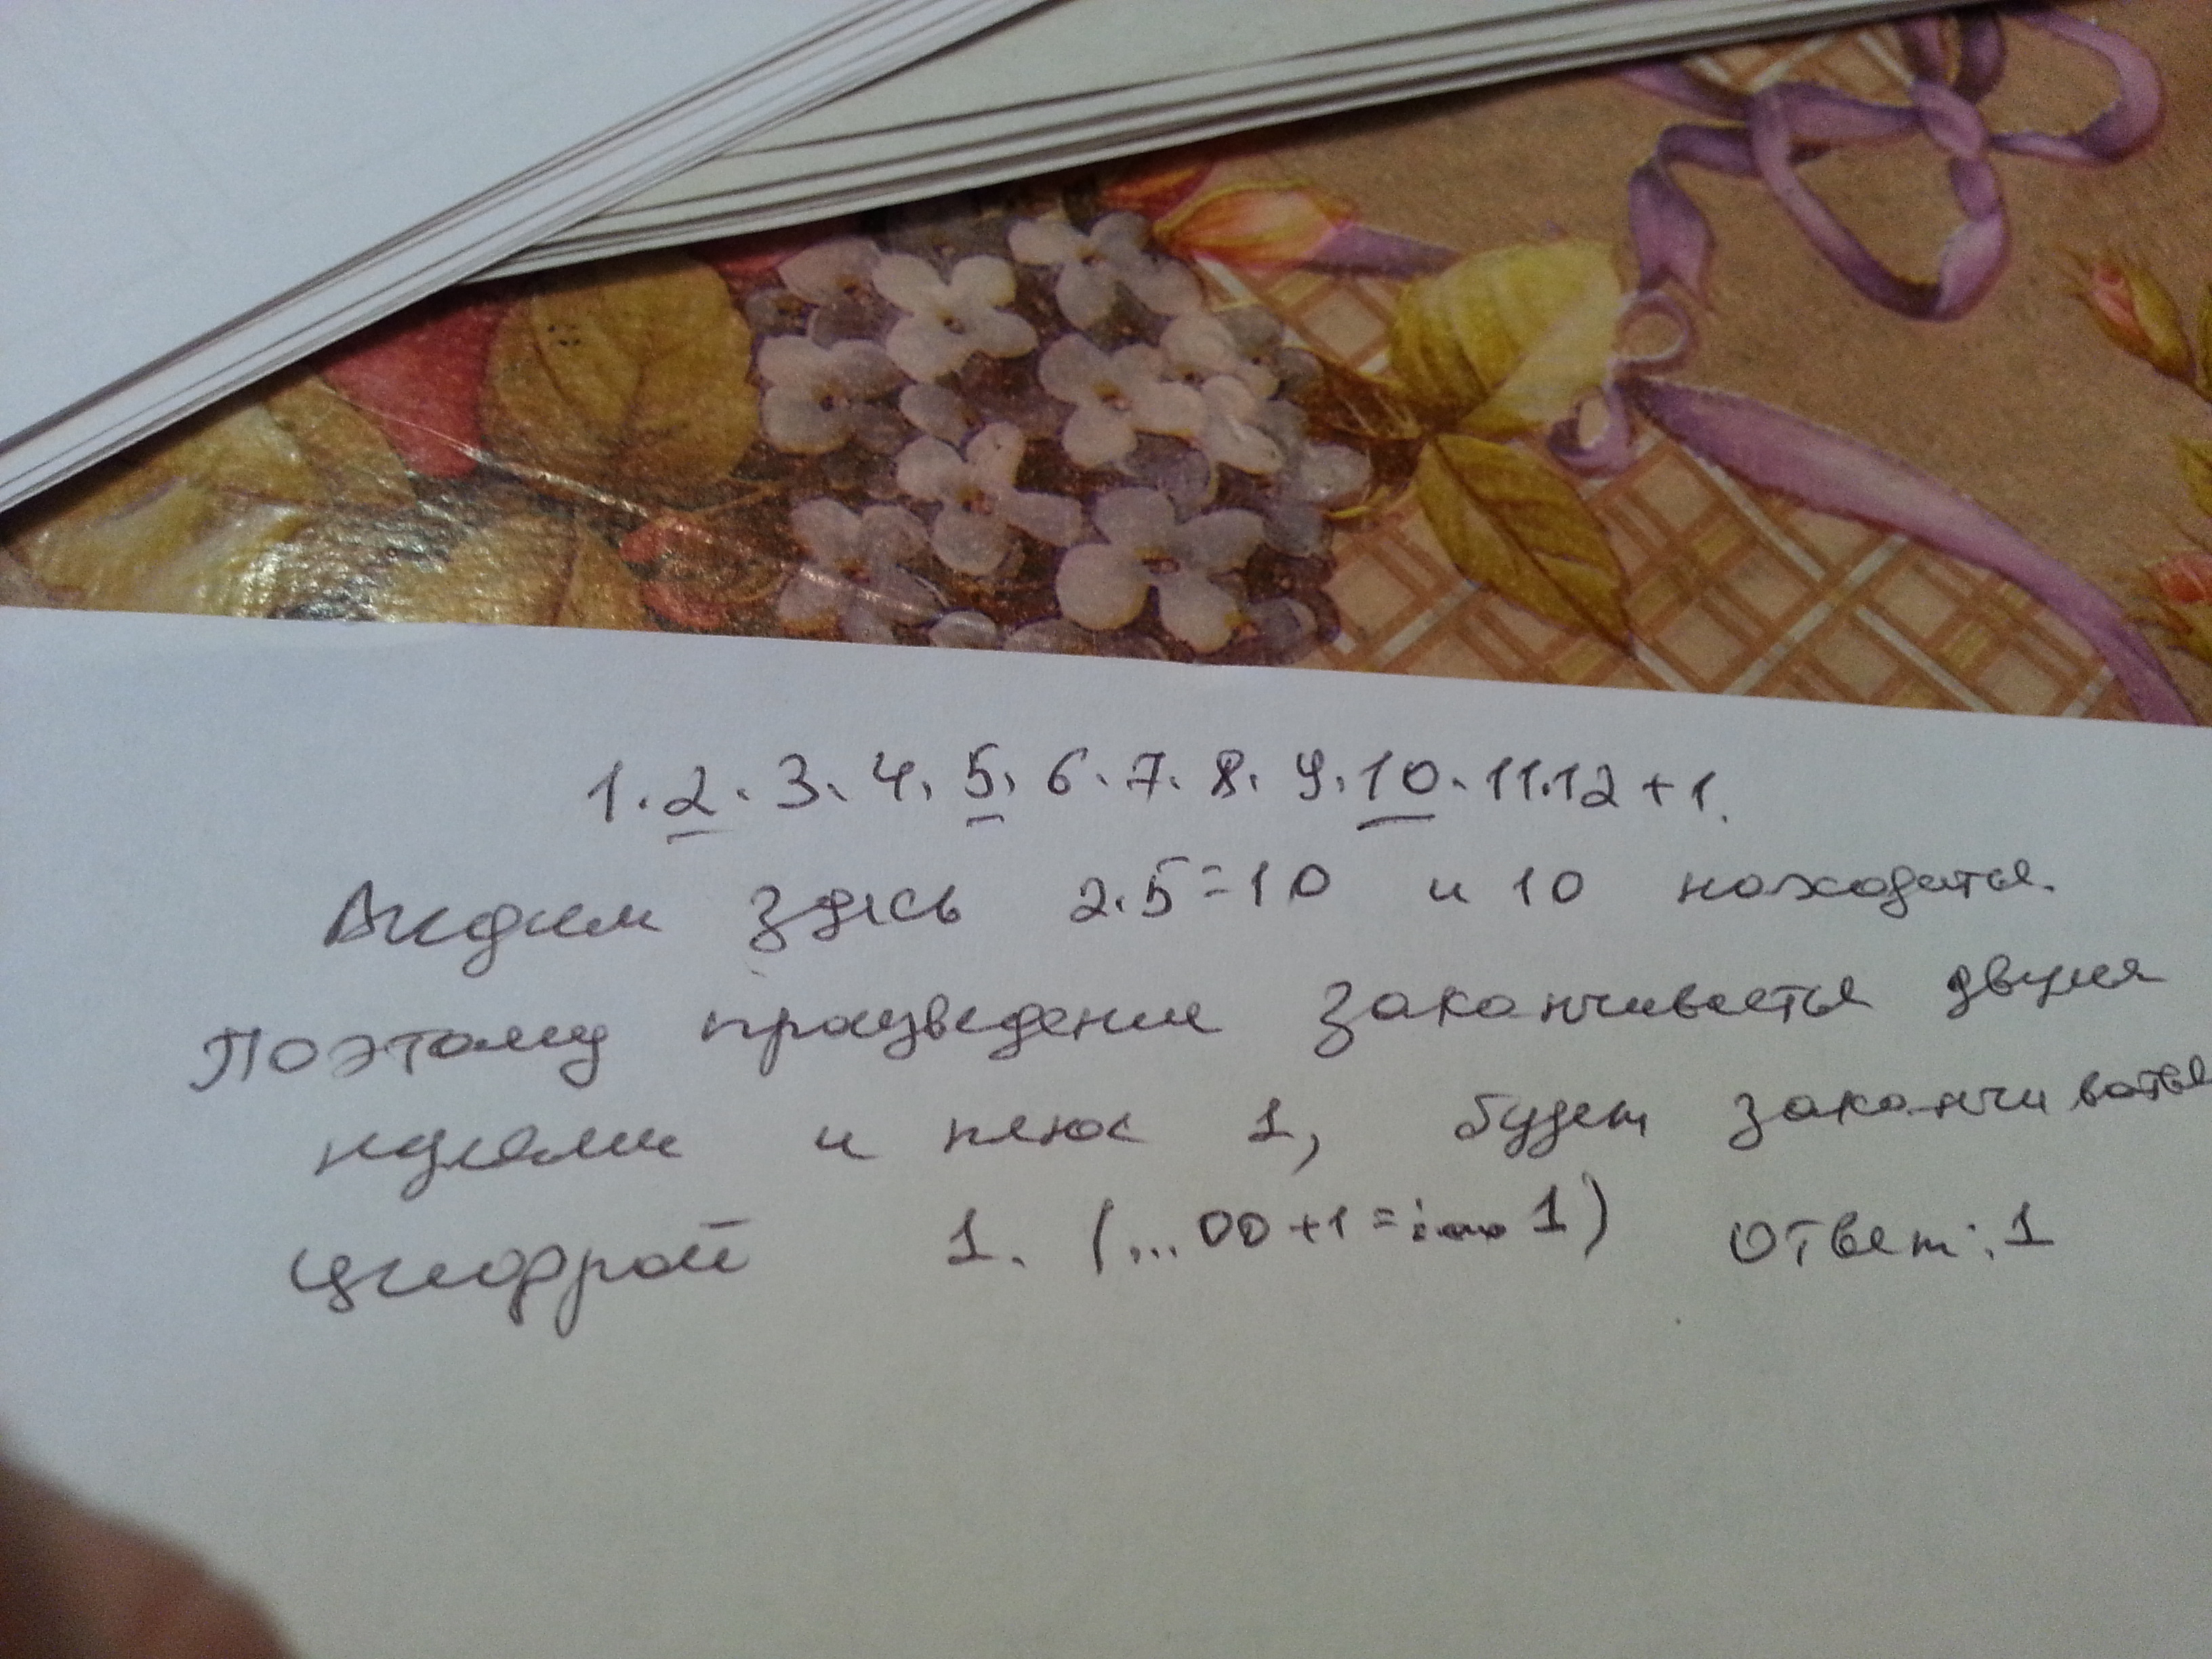 1·2·3·4·5·6·7·8·9·10·11·12+1.
Видим здесь 2·5=10 и 10 находится.
Поэтому произведение заканчивается двумя
нулями и плюс 1, будет заканчиваться
цифрой 1. (...00+1=...1) Ответ: 1